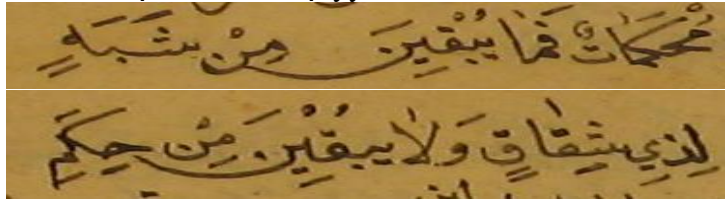 مُحَكَّمَاتٌ فَمَا يُبْقِينَ مِنْ شَبَهٍ
لِذِي شِقَاقٍ وَلَا يَبْقِينَ مِنْ حِكَمِ